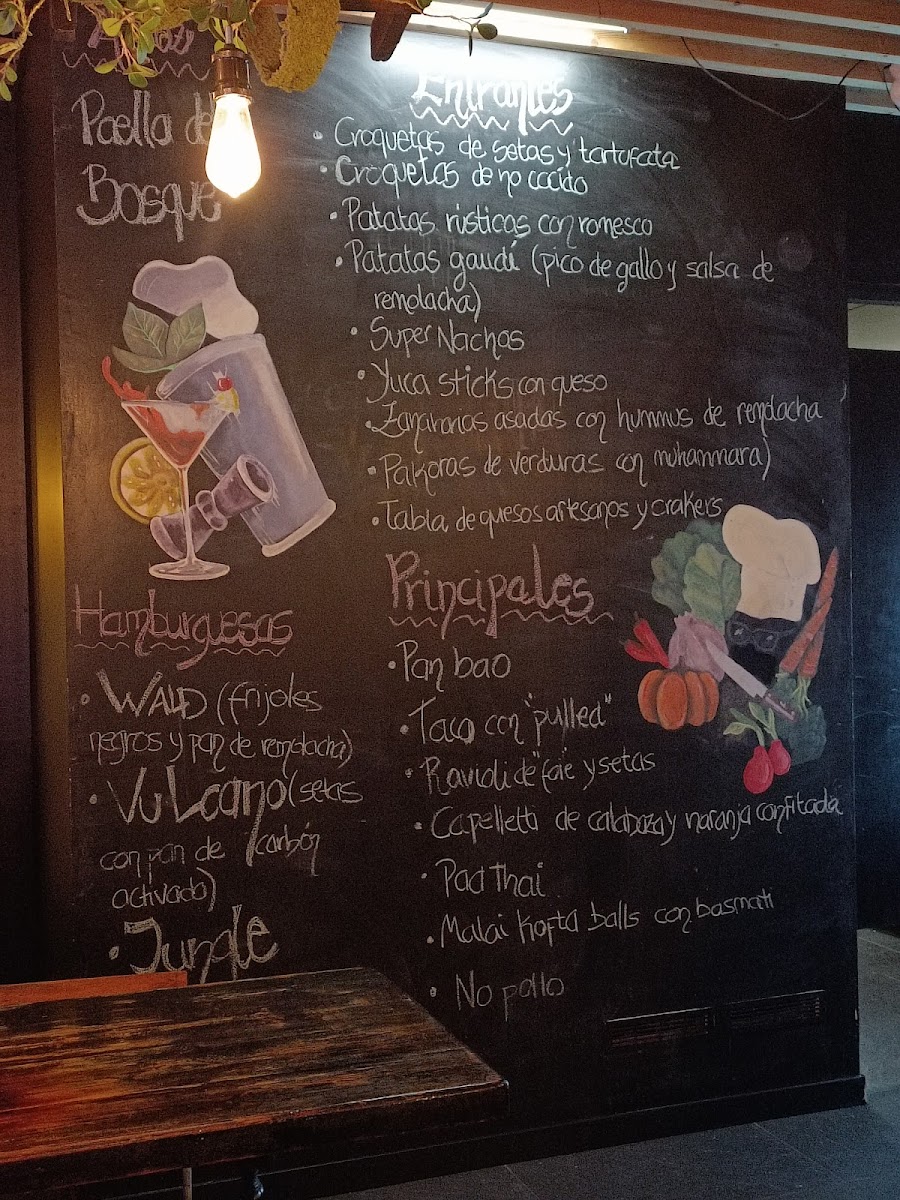 Paella del
Bosque
Entrantes
• Croquetas de setas y tartufata
• Croquetas de no cocido
• Patatas rústicas con romesco
• Patatas gaudí (pico de gallo y salsa de
remolacha)
• Super Nachos
• Yuca sticks con queso
• Zanahorias asadas con hummus de remolacha
• Pakoras de verduras con muhammara)
• Tabla de quesos artesanos y crakers
Hamburguesas
• WALD (frijoles
negros y pan de remolacha)
• Vulcano (setas
con pan de carbón
activado)
• Jungle
Principales
• Pan bao
• Taco con "pulled"
• Ravioli de "faie" y setas
• Capelletti de calabaza y naranja confitada
• Pad Thai
• Malai Kofta balls con basmati
• No pollo